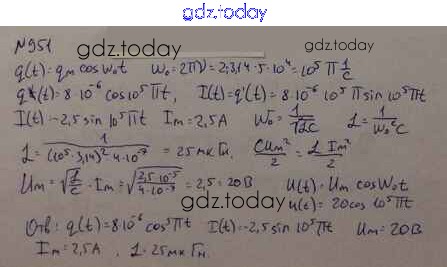 gdz.today
№951 gdz.today
q(t) = qm cos ω0t ω0 = 2πν = 2·3,14·5·10⁴ = 10⁵ π 1/c
q(t) = 8·10⁻⁶ cos 10⁵ πt, I(t) = q'(t) = 8·10⁻⁶ 10⁵ π sin 10⁵ πt
I(t) = -2,5 sin 10⁵ πt Im = 2,5 A ω0 = 1/√LC L = 1/ω0²C
L = 1/((10⁵·3,14)²·4·10⁻⁷) = 25 мк Гн. CUm²/2 = L Im²/2
Um = √(L/C) · Im = √(2,5·10⁻⁵/4·10⁻⁷) = 2,5 = 20 В U(t) = Um cos ω0t
gdz.today u(t) = 20 cos 10⁵ πt
Отв: q(t) = 8·10⁻⁶ cos⁵ πt I(t) = -2,5 sin 10⁵ πt Um = 20 В
Im = 2,5 A, L = 25 мк Гн.
gdz.today